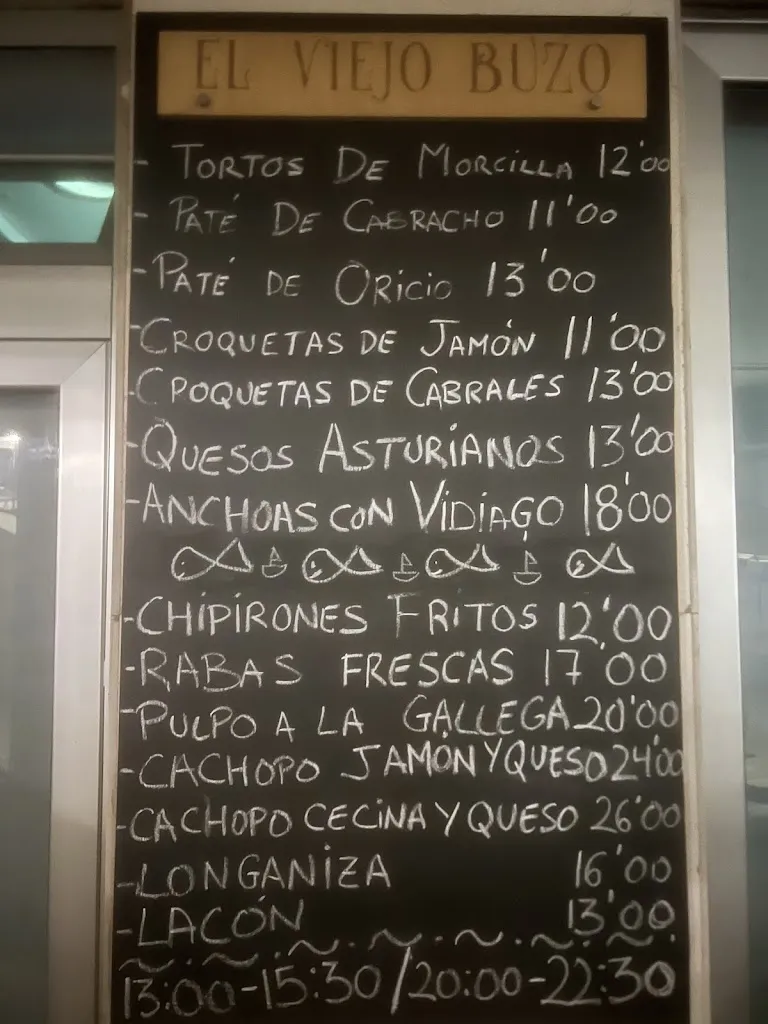 EL VIEJO BUZO
- TORTOS DE MORCILLA 12'00
- PATÉ DE CABRACHO 11'00
- PATÉ DE ORICIO 13'00
- CROQUETAS DE JAMÓN 11'00
- CROQUETAS DE CABRALES 13'00
- QUESOS ASTURIANOS 13'00
- ANCHOAS CON VIDIAGO 18'00
- CHIPIRONES FRITOS 12'00
- RABAS FRESCAS 17'00
- PULPO A LA GALLEGA 20'00
- CACHOPO JAMÓN Y QUESO 24'00
- CACHOPO CECINA Y QUESO 26'00
- LONGANIZA 16'00
- LACÓN 13'00
13:00-15:30/20:00-22:30